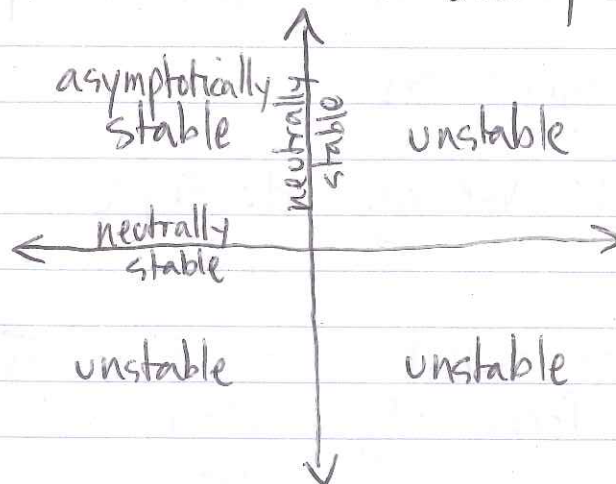 asymptotically
stable
neutrally
stable
unstable
neutrally
stable
unstable
unstable